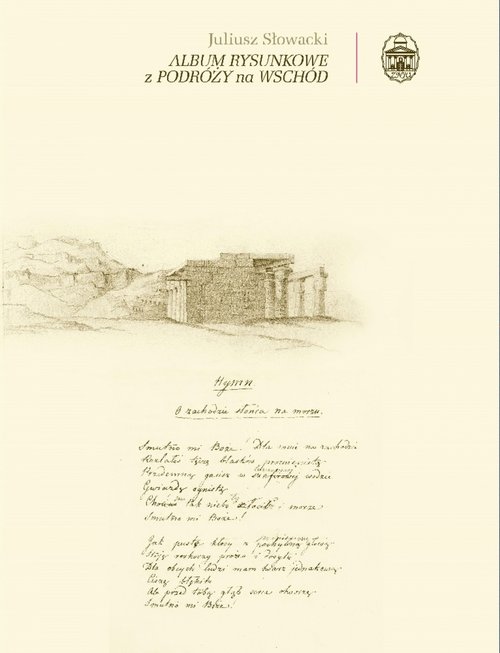 Juliusz Słowacki
ALBUM RYSUNKOWE
z PODRÓŻY na WSCHÓD
Hymn
O zachodzie słońca na morzu.
Smutno mi Boże! Dla mnie na zachodzie
Rozlałeś tęczę blasków promienistą
Przedemną gasisz w lazurowej wodzie
Gwiazdy ogniste
Chociaż tak niebo złocisz i morze
Smutno mi Boże!
Jak puste kłosy z podniesioną głową
Stoję rozkoszy próżen i dosytu
Dla obcych ludzi mam twarz jednakową
Ciszę błękitu
Ale przed tobą głąb serca otworzę
Smutno mi Boże!